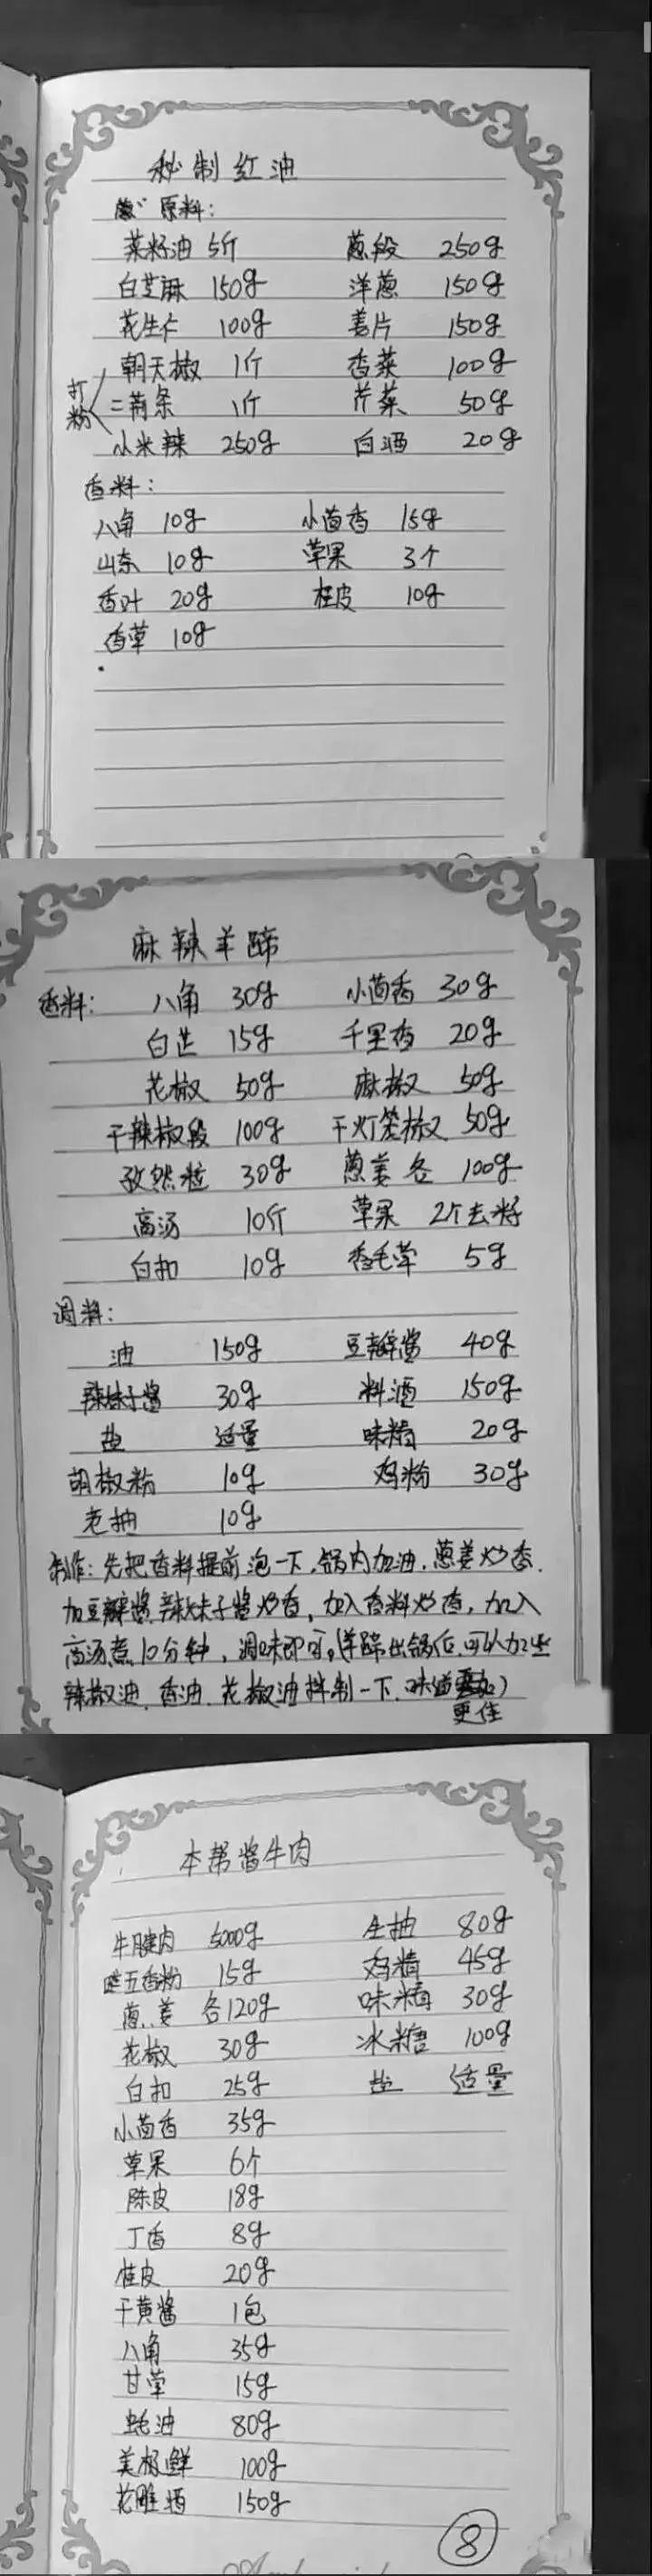 秘制红油
原料:
菜籽油 5斤 葱段 250g
白芝麻 150g 洋葱 150g
花生仁 100g 姜片 150g
朝天椒 1斤 香菜 100g
打粉 二荆条 1斤 芹菜 50g
小米辣 250g 白酒 20g
香料:
八角 10g 小茴香 15g
山奈 10g 草果 3个
香叶 20g 桂皮 10g
香草 10g
麻辣羊蹄
香料: 八角 30g 小茴香 30g
白芷 15g 千里香 20g
花椒 50g 麻椒 50g
干辣椒段 100g 干灯笼椒 50g
孜然粒 30g 葱姜各 100g
高汤 10斤 草果 2个去籽
白扣 10g 香毛草 5g
调料:
油 150g 豆瓣酱 40g
辣妹子酱 30g 料酒 150g
盐 适量 味精 20g
胡椒粉 10g 鸡粉 30g
老抽 10g
制作: 先把香料提前泡一下,锅内加油,葱姜炒香,
加豆瓣酱,辣妹子酱炒香,加入香料炒香,加入
高汤煮10分钟,调味即可。(羊蹄出锅后,可以加些
辣椒油,香油,花椒油拌制一下,味道
更佳)
本帮酱牛肉
牛腱肉 5000g 生抽 80g
五香粉 15g 鸡精 45g
葱、姜 各120g 味精 30g
花椒 30g 冰糖 100g
白扣 25g 盐 适量
小茴香 35g
草果 6个
陈皮 18g
丁香 8g
桂皮 20g
干黄酱 1包
八角 35g
甘草 15g
蚝油 80g
美极鲜 100g
花雕酒 150g
8